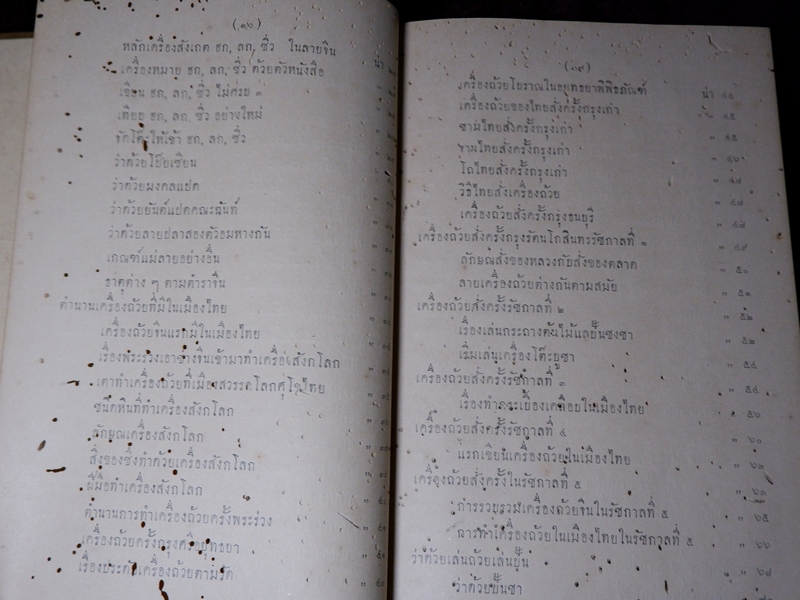 (๑๖)
หลักเครื่องสังเกต ฮก, ลก, ซิ่ว ในลายจีน
เครื่องหมาย ฮก, ลก, ซิ่ว ด้วยตัวหนังสือ น่า
เขียน ฮก, ลก, ซิ่ว ไม่ครบ ๓
เขียน ฮก, ลก, ซิ่ว อย่างใหม่
จัดโต๊ะให้เข้า ฮก, ลก, ซิ่ว
ว่าด้วยโป๊ยเซียน
ว่าด้วยมงคลแปด
ว่าด้วยยันต์แปดคณะฉันท์
ว่าด้วยลายปลาสองตัวอมหางกัน
เกณฑ์แม่ลายอย่างอื่น
ธาตุต่าง ๆ ตามตำราจีน
ตำนานเครื่องถ้วยที่มีในเมืองไทย
เครื่องถ้วยจีนแรกมีในเมืองไทย
เรื่องพระร่วงเอาช่างจีนเข้ามาทำเครื่องสังกโลก
เตาทำเครื่องถ้วยที่เมืองสวรรคโลกศุโขไทย
ชนิดหินที่ทำเครื่องสังกโลก
ลักษณเครื่องสังกโลก
สิ่งของซึ่งทำด้วยเครื่องสังกโลก
ฝีมือทำเครื่องสังกโลก
ตำนานการทำเครื่องถ้วยครั้งพระร่วง
เครื่องถ้วยครั้งกรุงศรีอยุทธยา
เรื่องประดับเครื่องถ้วยตามวัด
(๑๗)
เครื่องถ้วยโบราณในอยุทธยาพิพิธภัณฑ์ น่า ๔๔
เครื่องถ้วยของไทยสั่งครั้งกรุงเก่า
ชามไทยสั่งครั้งกรุงเก่า " ๔๕
จานไทยสั่งครั้งกรุงเก่า " ๔๖
โถไทยสั่งครั้งกรุงเก่า " ๔๗
วิธีไทยสั่งเครื่องถ้วย " ๔๗
เครื่องถ้วยสั่งครั้งกรุงธนบุรี " ๔๙
เครื่องถ้วยสั่งครั้งกรุงรัตนโกสินทรรัชกาลที่ ๑ " ๔๙
ลักษณสั่งของหลวงกับสั่งของตลาด " ๕๐
ลายเครื่องถ้วยต่างกันตามสมัย " ๕๑
เครื่องถ้วยสั่งครั้งรัชกาลที่ ๒ " ๕๒
เรื่องเล่นกระถางต้นไม้แลปั้นชงชา " ๕๔
เริ่มเล่นเครื่องโต๊ะบูชา
เครื่องถ้วยสั่งครั้งรัชกาลที่ ๓ " ๕๔
เรื่องทำกระเบื้องเคลือบในเมืองไทย " ๕๖
เครื่องถ้วยสั่งครั้งรัชกาลที่ ๔ " ๖๐
แรกเขียนเครื่องถ้วยในเมืองไทย " ๖๐
เครื่องถ้วยสั่งครั้งในรัชกาลที่ ๕ " ๖๑
การรวบรวมเครื่องถ้วยจีนในรัชกาลที่ ๕ " ๖๕
การทำเครื่องถ้วยในเมืองไทยในรัชกาลที่ ๕ " ๖๖
ว่าด้วยเล่นถ้วยเล่นปั้น
ว่าด้วยปั้นชา